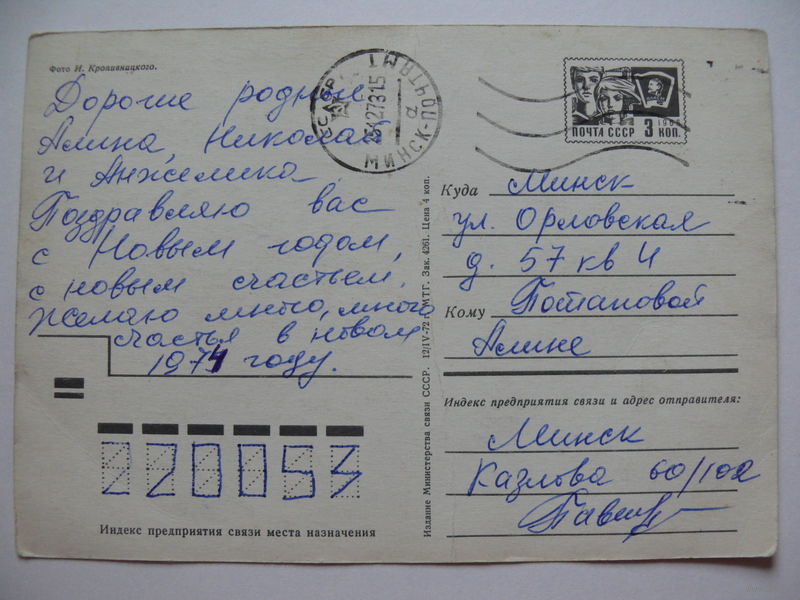 Фото И. Кропивницкого.
Дорогие родные
Алина, Николай
и Анжелика
Поздравляю вас
с Новым годом,
с новым счастьем.
Желаю много, много
счастья в новом
1974 году.
220053
Индекс предприятия связи места назначения
Издание Министерства связи СССР. 12/IV-72 г. МТГ. Зак. 4261. Цена 4 коп.
ПОЧТАМТ
МИНСК-
ПОЧТА СССР 3 КОП.
Куда Минск
ул. Орловская
д. 57 кв 4
Кому Потаповой
Алине
Индекс предприятия связи и адрес отправителя:
Минск
Казлова 60/102